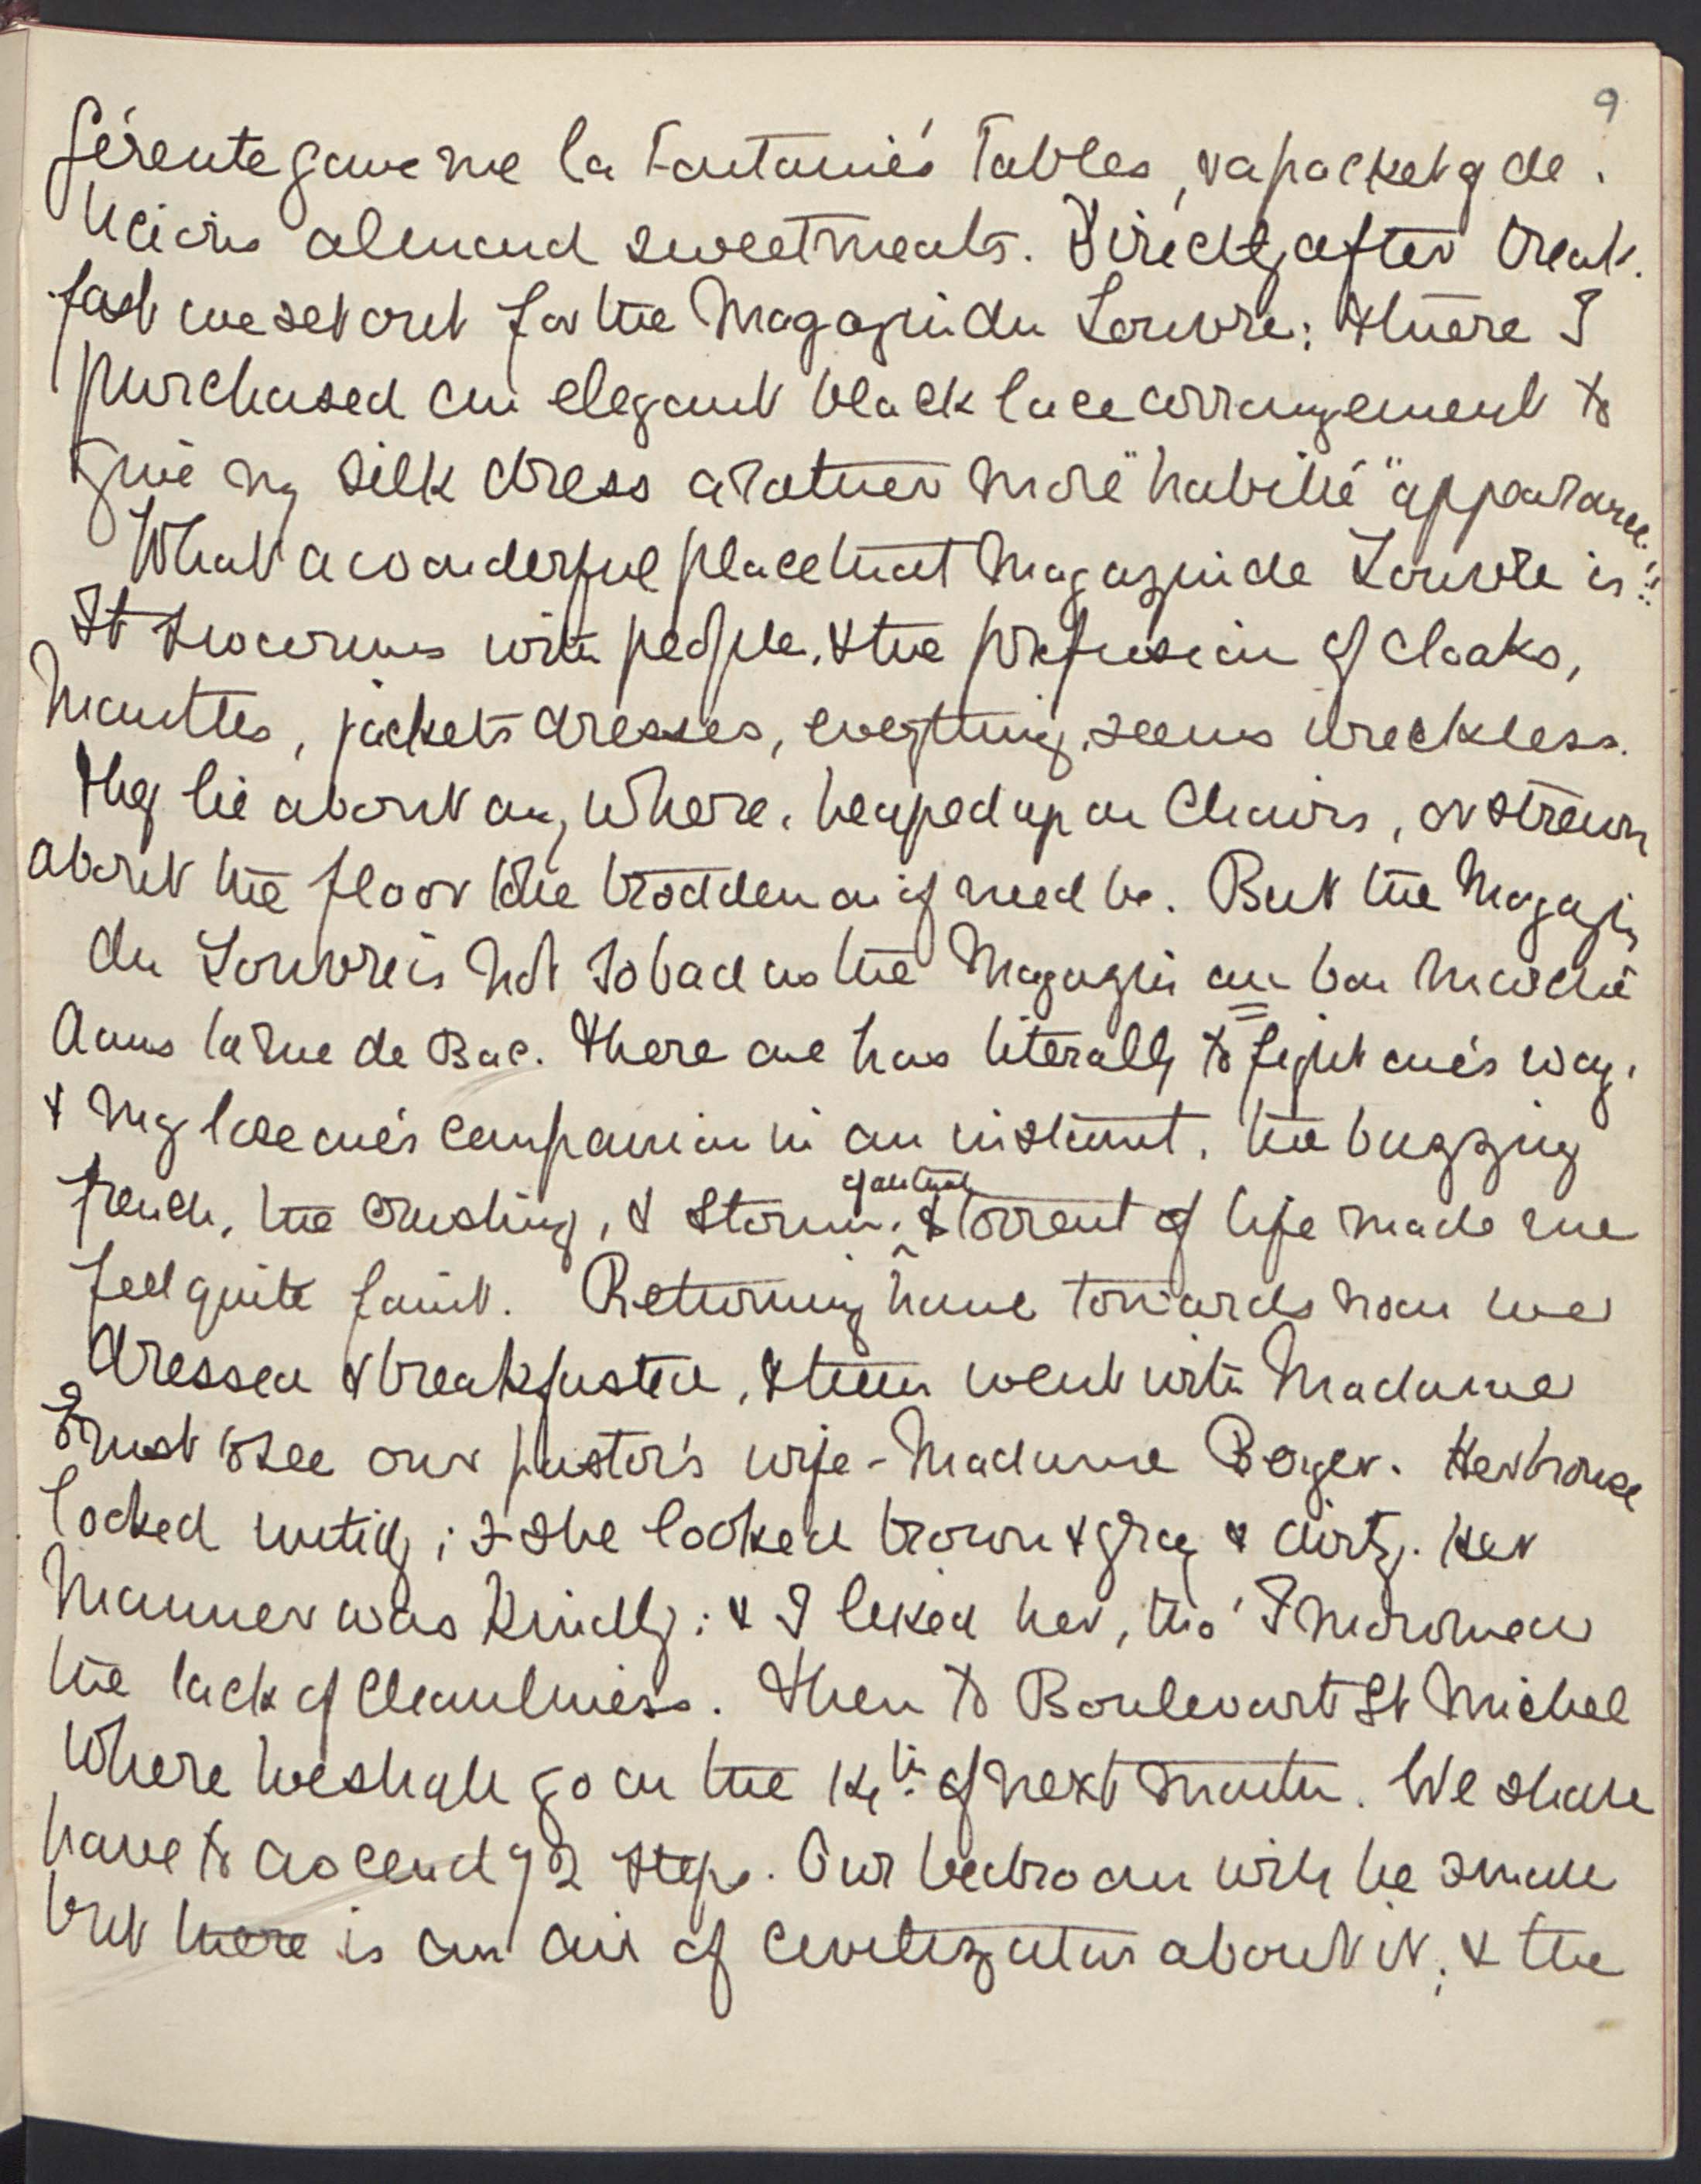 9
gérente gave me la Fontaine's Fables, & a packet of de.
licious almond sweetmeats. Directly after break.
fast we set out for the Magazin du Louvre: there I
purchased an elegant black lace arrangement to
give my silk dress a rather more "habillé" appearance.
What a wonderful place that Magazin de Louvre is!!
It swarms with people, & the profusion of cloaks,
mantles, jackets dresses, everything, seems wreckless.
they lie about any where, heaped up on Chairs, or strewn
about the floor to be trodden on if need be. But the Magazin
du Louvre is not so bad as the Magazin au bon marché
dans la rue de Bac. there one has literally to fight one's way,
& may lose one's companion in an instant. the buzzing
french, the crushing, & storm, & torrent of life made me
feel quite faint. Returning home towards noon we
dressed & breakfasted, & then went with Madame
to see our pastor's wife - Madame Boyer. Her house
looked untidy; & she looked brown & gray & dirty. Her
manner was kindly: & I liked her, tho' I mourned
the lack of cleanliness. then to Boulevart St Michel
where we shall go on the 14th of next month. We shall
have to ascend 92 steps. Our bedroom will be small
but there is an air of civilization about it; & the